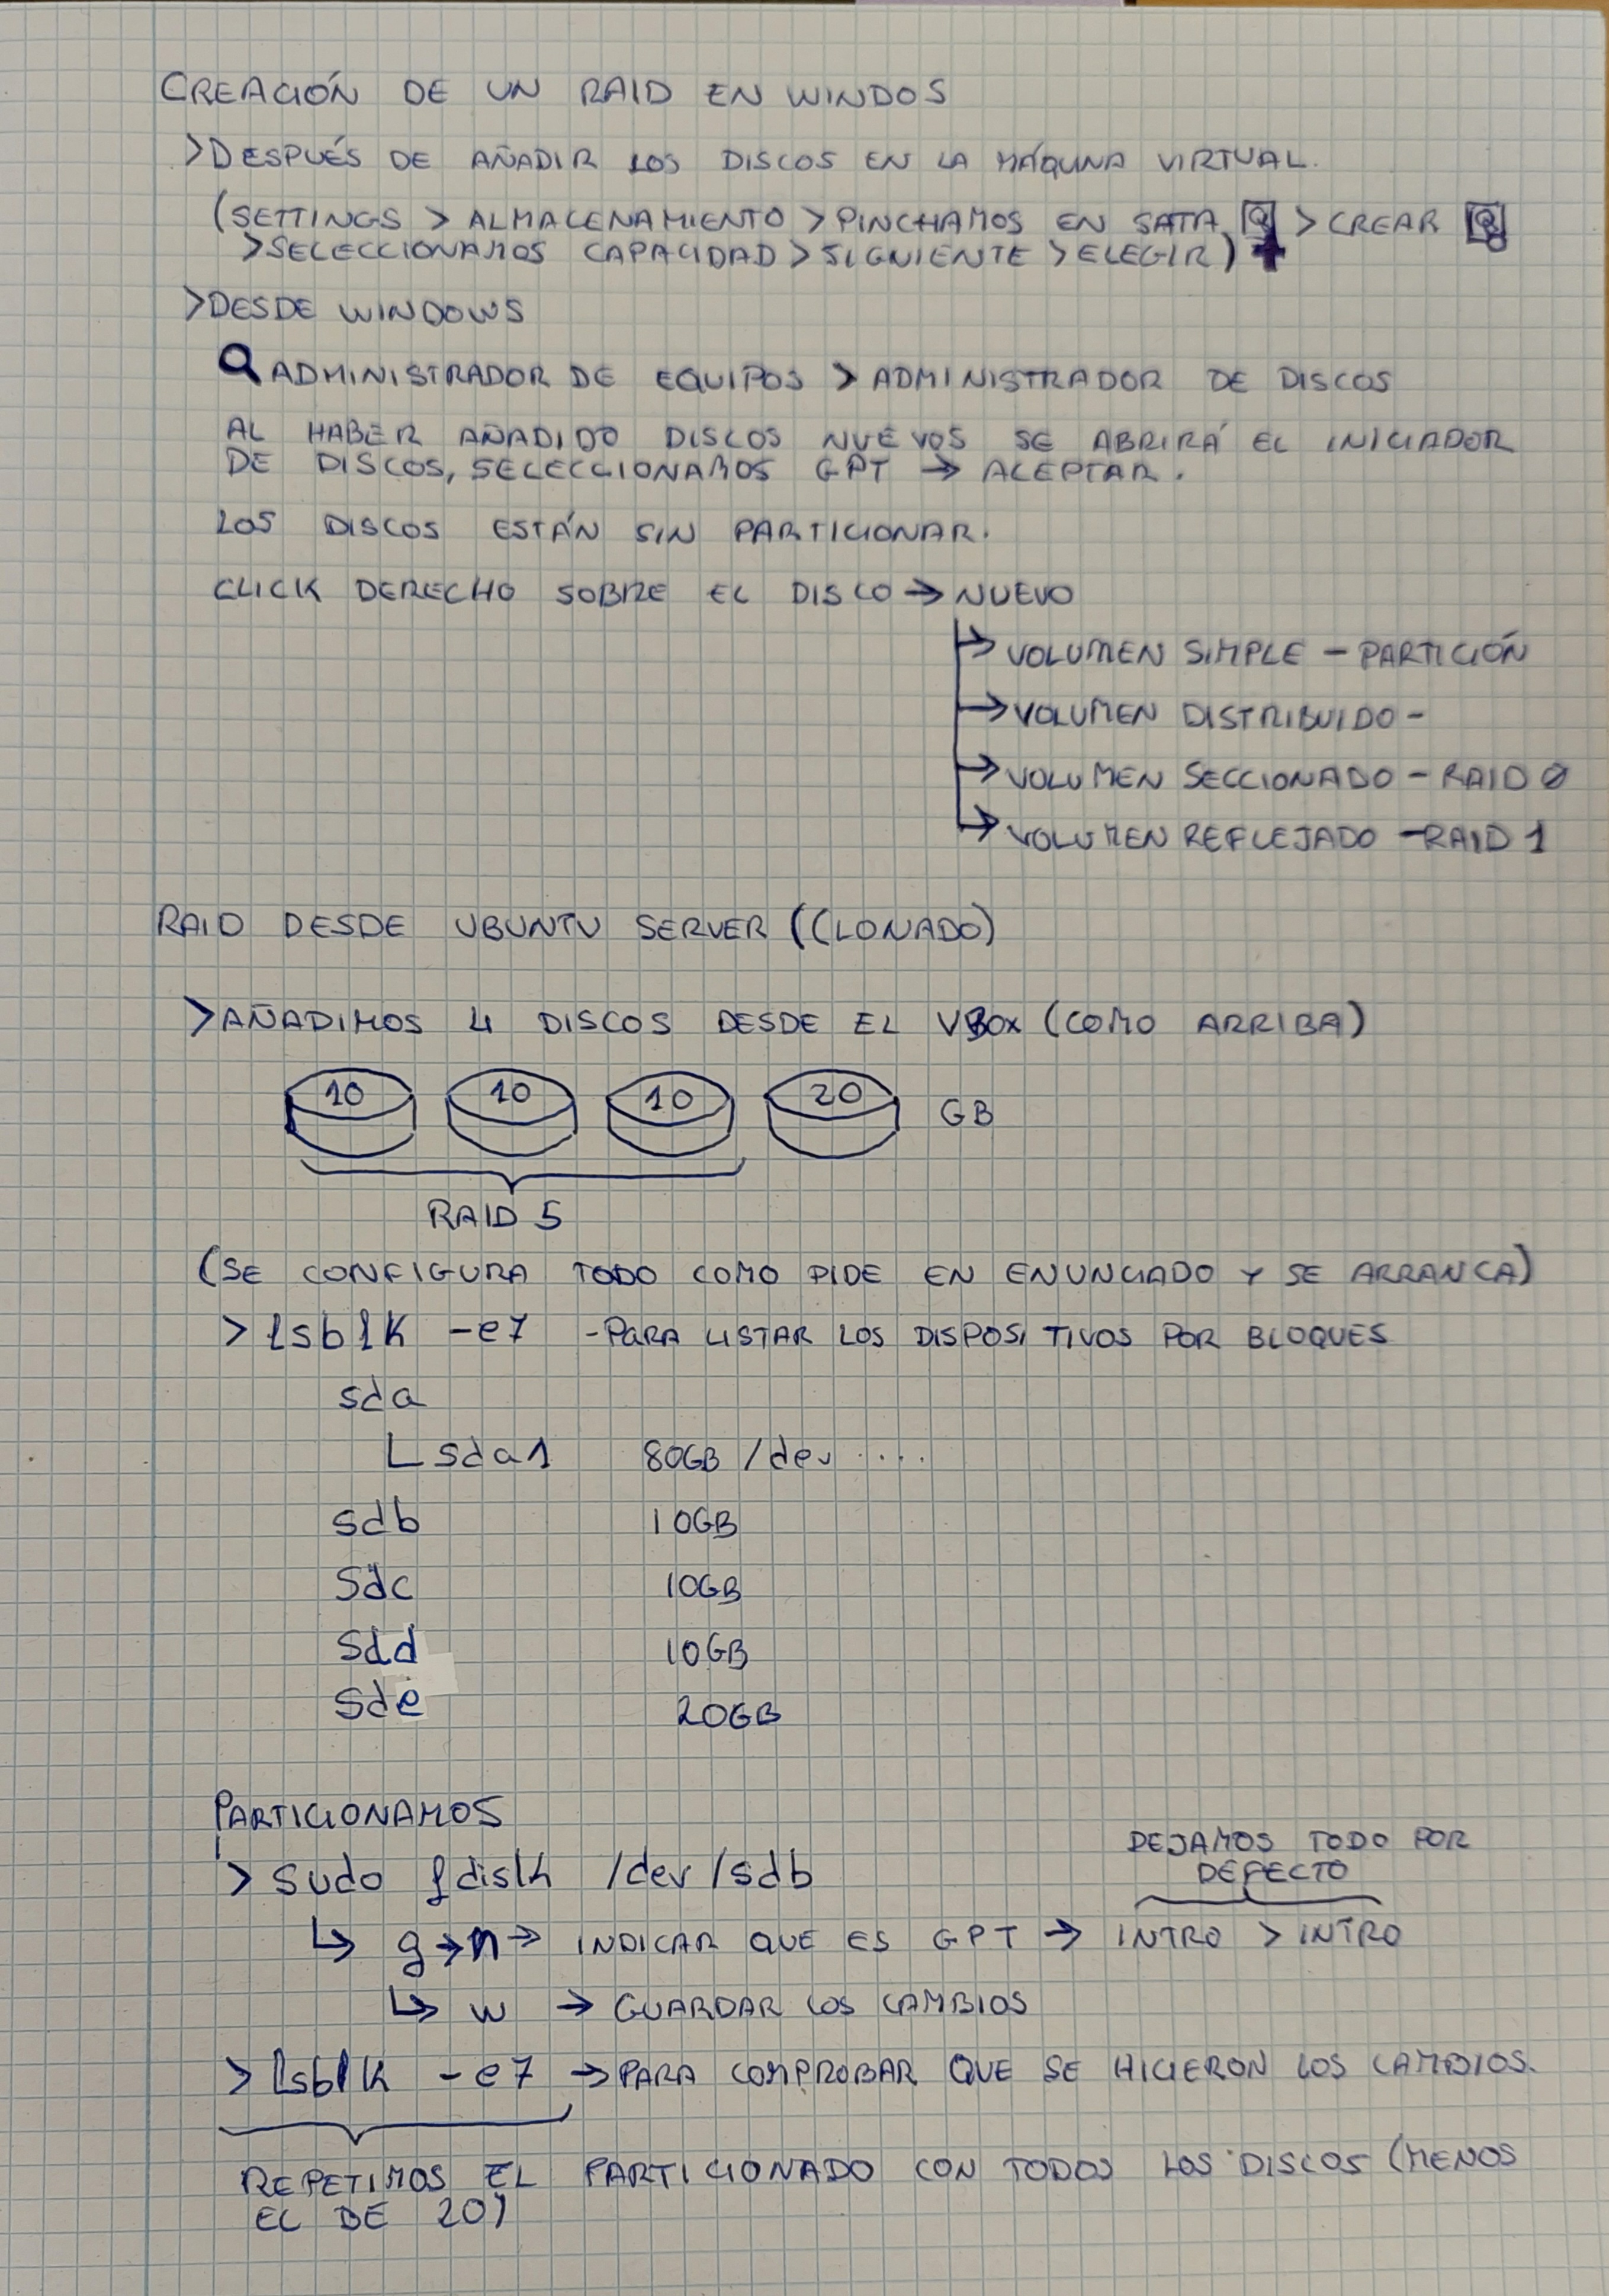 CREACIÓN DE UN RAID EN WINDOS
>DESPUÉS DE AÑADIR LOS DISCOS EN LA MÁQUINA VIRTUAL.
(SETTINGS > ALMACENAMIENTO > PINCHAMOS EN SATA > CREAR
>SELECCIONAMOS CAPACIDAD > SIGNIENTE > ELEGIR)
>DESDE WINDOWS
ADMINISTRADOR DE EQUIPOS > ADMINISTRADOR DE DISCOS
AL HABER AÑADIDO DISCOS NUEVOS SE ABRIRÁ EL INICIADOR
DE DISCOS, SELECCIONAMOS GPT → ACEPTAR.
LOS DISCOS ESTÁN SIN PARTICIONAR.
CLICK DERECHO SOBRE EL DISCO → NUEVO
→ VOLUMEN SIMPLE - PARTICIÓN
→ VOLUMEN DISTRIBUIDO -
→ VOLUMEN SECCIONADO - RAID 0
→ VOLUMEN REFLEJADO - RAID 1
RAID DESDE UBUNTU SERVER (CLONADO)
>AÑADIMOS 4 DISCOS DESDE EL VBOX (COMO ARRIBA)
10 10 10 20 GB
RAID 5
(SE CONFIGURA TODO COMO PIDE EN ENUNCIADO Y SE ARRANCA)
> lsblk -e7 - PARA LISTAR LOS DISPOSITIVOS POR BLOQUES
sda
└ sda1 80GB /dev ....
sdb 10GB
sdc 10GB
sdd 10GB
sde 20GB
PARTICIONAMOS
DEJAMOS TODO POR
DEFECTO
> sudo fdisk /dev/sdb
↳ g→n→ INDICAR QUE ES GPT → INTRO > INTRO
↳ w → GUARDAR LOS CAMBIOS
> lsblk -e7 → PARA COMPROBAR QUE SE HICIERON LOS CAMBIOS.
REPETIMOS EL PARTICIONADO CON TODOS LOS DISCOS (MENOS
EL DE 20)